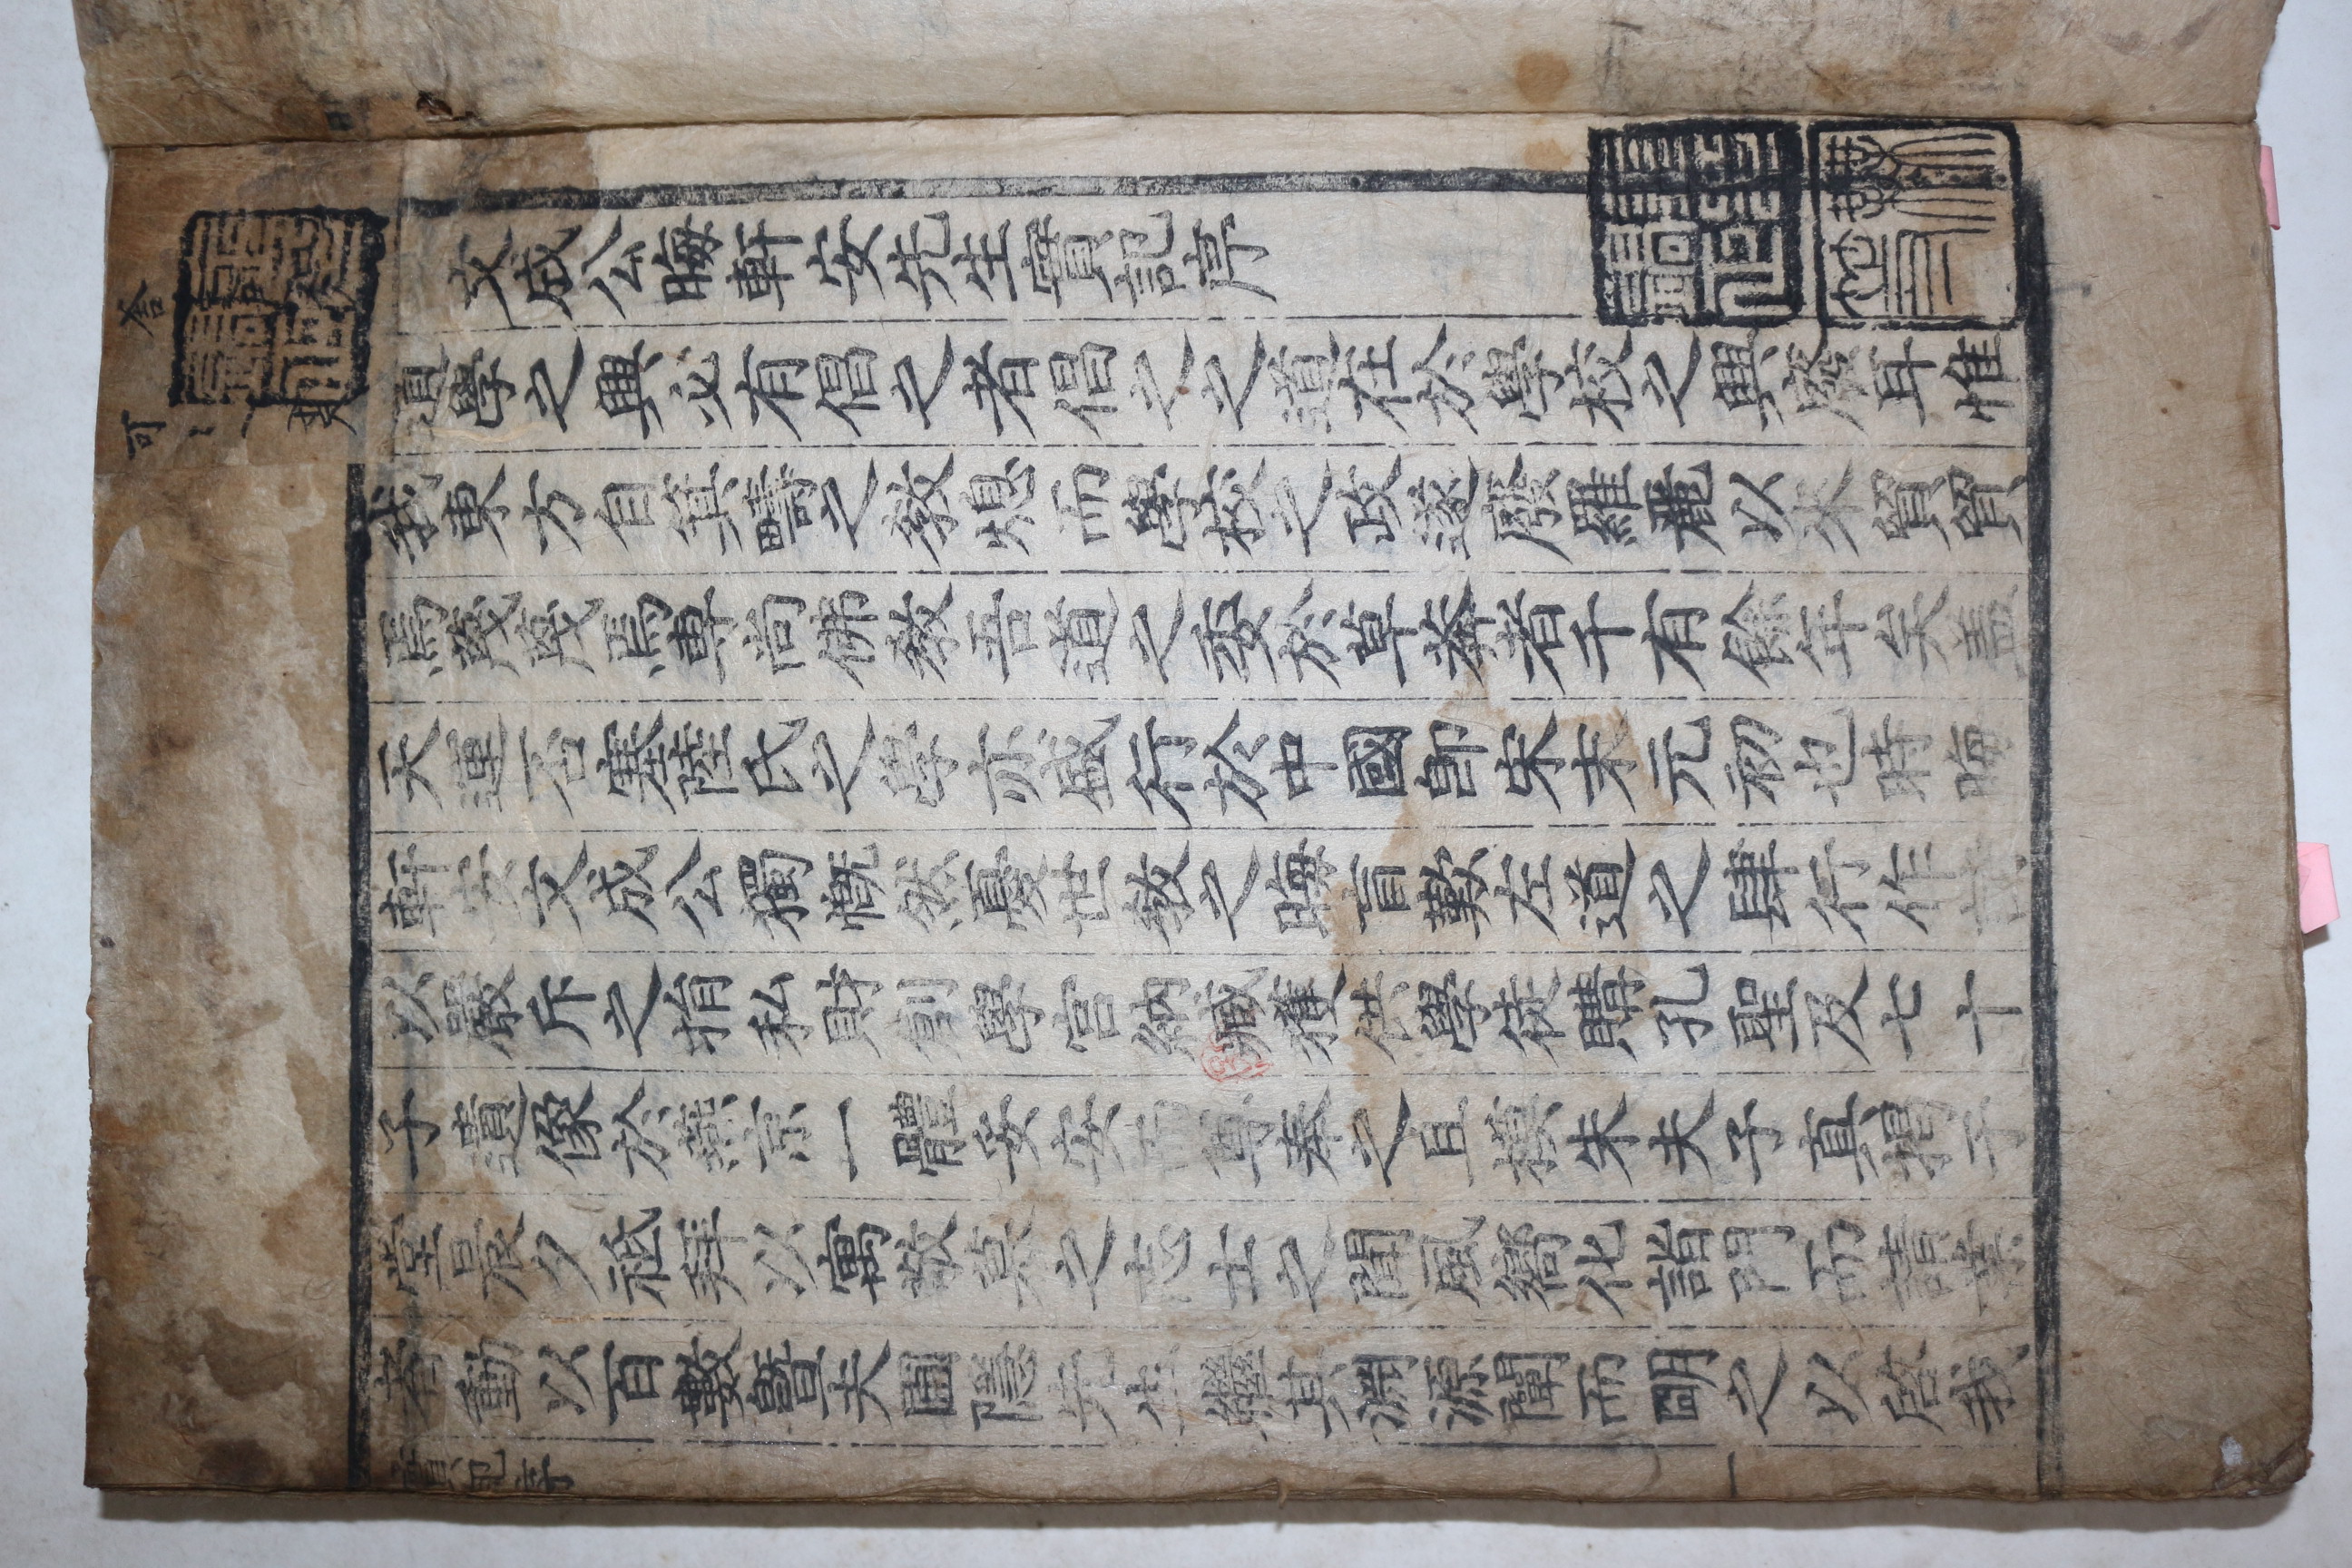 文成公晦軒安先生實記序
道學之興必有倡之者倡之之道在於學校之興廢耳惟
我東方自箕疇之教熄而學校之政遂廢羅麗以來貿貿
焉凌凌焉專尚佛教吾道之委於草莽者千有餘年矣盖
天運否塞陸氏之學亦盛行於中國即宋末元初也時晦
軒安文成公獨慨然憂世教之晦盲歎左道之肆行作
以嚴斥之捐私財創學宮納臧獲供學徒購孔聖及七十
子遺像於燕京一體安安而尊奉之且摸朱夫子真揭于
堂晨夕祗拜以寓敬慕之志士之聞風嚮化詣門而請業
者動以百數暨夫圃隱先生繼其淵源闡而明之以啓我
實記序